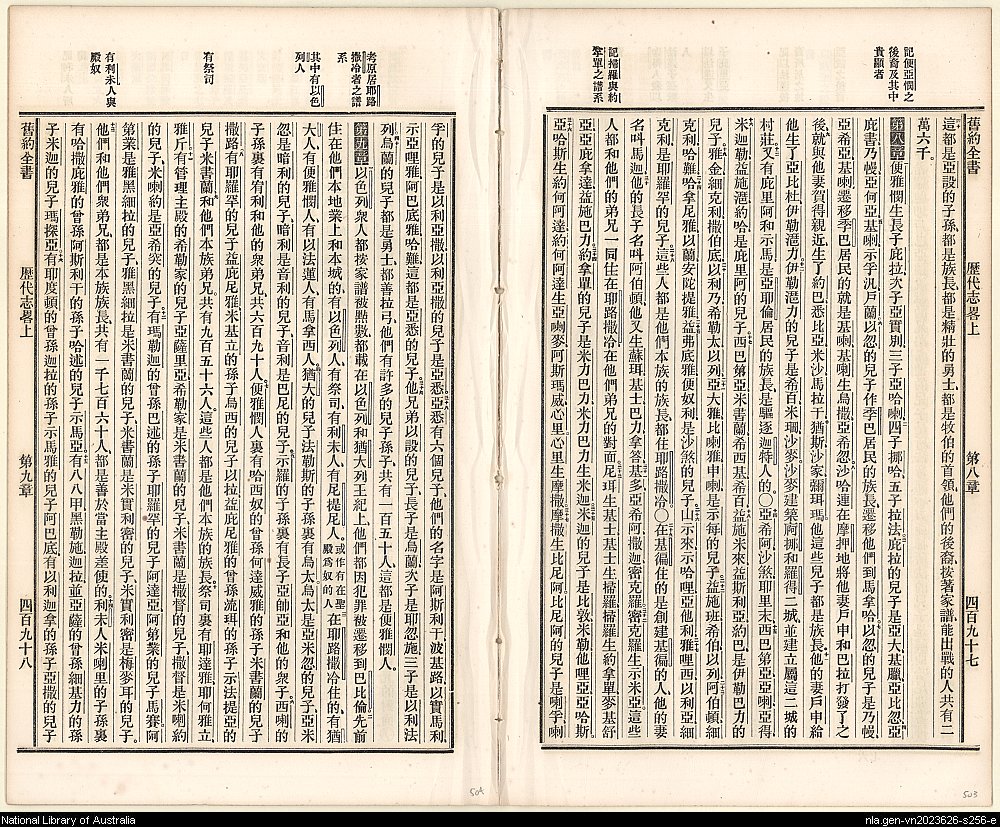 記便亞憫之
後裔及其中
貴顯者
記掃羅與約
拿單之譜系
舊約全書
歷代志畧上
第八章
四百九十七
這都是亞設的子孫都是族長都是精壯的勇士都是牧伯的首領他們的後裔按著家譜能出戰的人共有二
萬六千
第八章便雅憫生長子庇拉次子亞實別三子亞哈喇四子挪哈五子拉法庇拉的兒子是亞大基臘亞比忽
庇書乃幔亞何亞基喇示孚汛戶蘭以忽的兒子作季巴居民的族長遷移他們到馬拿哈以忽的兒子是乃幔
亞希亞基喇遷移季巴居民的就是基喇基喇生烏撒亞希忽沙哈連在摩押地將他妻戶申和巴拉打發了之
後就與他妻賀得親近生了約巴悉比亞米沙馬拉干猶斯沙家彌珥瑪他這些兒子都是族長他的妻戶申給
他生了亞比杜伊勒濕力伊勒濕力的兒子是希百米珊沙麥沙麥建築阿挪和羅得二城並建立屬這二城的
村莊又有庇里阿和示馬是亞耶倫居民的族長是驅逐迦特人的〇亞希阿沙煞耶里末西巴第亞亞喇亞得
米迦勒益施濕約哈是庇里阿的兒子西巴第亞米書蘭希西基希百益施米來益斯利亞約巴是伊勒巴力的
兒子雅金細克利撒伯底以利乃希勒太以列亞大雅比喇雅申喇是示每的兒子益施班希伯以列阿伯頓細
克利哈難哈拿尼雅以蘭安陀提雅益弗底雅便奴利是沙煞的兒子山示來示哈哩亞他利雅哩西以利亞細
克利是耶羅罕的兒子這些人都是他們本族的族長都住耶路撒冷〇在基徧住的是創建基徧的人他的妻
名叫馬迦他的長子名叫阿伯頓他又生蘇珥基士巴力拿答基多亞希阿撒迦密克羅密克羅生示米亞這些
人都和他們的弟兄一同住在耶路撒冷在他們弟兄的對面尼珥生基士基士生掃羅掃羅生約拿單麥基舒
亞亞庇拿達益施巴力約拿單的兒子是米力巴力米力巴力生米迦米迦的兒子是比敦米勒他哩亞亞哈斯
亞哈斯生約何阿達約何阿達生亞亞喇麥阿斯瑪威心里心里生摩撒摩撒生比尼阿比尼阿的兒子是喇孚喇
考原居耶路
撒冷者之譜
系
其中有以色
列人
有祭司
有利未人與
殿奴
孚的兒子是以利亞撒以利亞撒的兒子是亞悉亞悉有六個兒子他們的名字是阿斯利干波基路以實馬利
示亞哩雅阿巴底雅哈難這都是亞悉的兒子他兄弟以設的兒子長子是烏蘭次子是耶忽施三子是以利法
列烏蘭的兒子都是勇士都善拉弓他們有許多的兒子孫子共有一百五十人這都是便雅憫人
第九章以色列眾人都按家譜被點數都載在以色列和猶大列王紀上他們都因犯罪被遷移到巴比倫先前
住在他們本地業上和本城的有以色列人有祭司有利未人有尼提尼人或作有在聖殿爲奴的人在耶路撒冷住的有猶
大人有便雅憫人有以法蓮人有馬拿西人猶大的兒子法勒斯的子孫裏有烏太烏太是亞米忽的兒子亞米
忽是暗利的兒子暗利是音利的兒子音利是巴尼的兒子示羅的子孫裏有長子亞師亞和他的眾子西喇的
子孫裏有宥利和他的眾弟兄共六百九十人便雅憫人裏有哈西奴的曾孫何達威雅的孫子米書蘭的兒子
撒路有耶羅罕的兒子益庇尼雅米基立的孫子烏西的兒子以拉益庇尼雅的曾孫流珥的孫子示法提亞的
兒子米書蘭和他們本族弟兄共有九百五十六人這些人都是他們本族的族長祭司裏有耶達雅耶何雅立
雅斤有管理主殿的希勒家的兒子亞薩里亞希勒家是米書蘭的兒子米書蘭是撒督的兒子撒督是米喇約
的兒子米喇約是亞希突的兒子有瑪勒迦的曾孫巴述的孫子耶羅罕的兒子阿達亞阿第業的兒子馬賽阿
第業是雅黑細拉的兒子雅黑細拉是米書蘭的兒子米書蘭是米實利密的兒子米實利密是梅麥耳的兒子
他們和他們眾弟兄都是本族族長共有一千七百六十人都是善於當主殿差使的利未人米喇里的子孫裏
有哈撒庇雅的曾孫阿斯利干的孫子哈述的兒子示馬亞有八八甲黑勒施迦拉並亞薩的曾孫細基力的孫
子米迦的兒子瑪探亞有耶度頓的曾孫迦拉的孫子示馬雅的兒子阿巴底有以利迦拿的孫子亞撒的兒子
舊約全書
歷代志畧上
第九章
四百九十八
504
503
National Library of Australia
nla.gen-vn2023626-s256-e